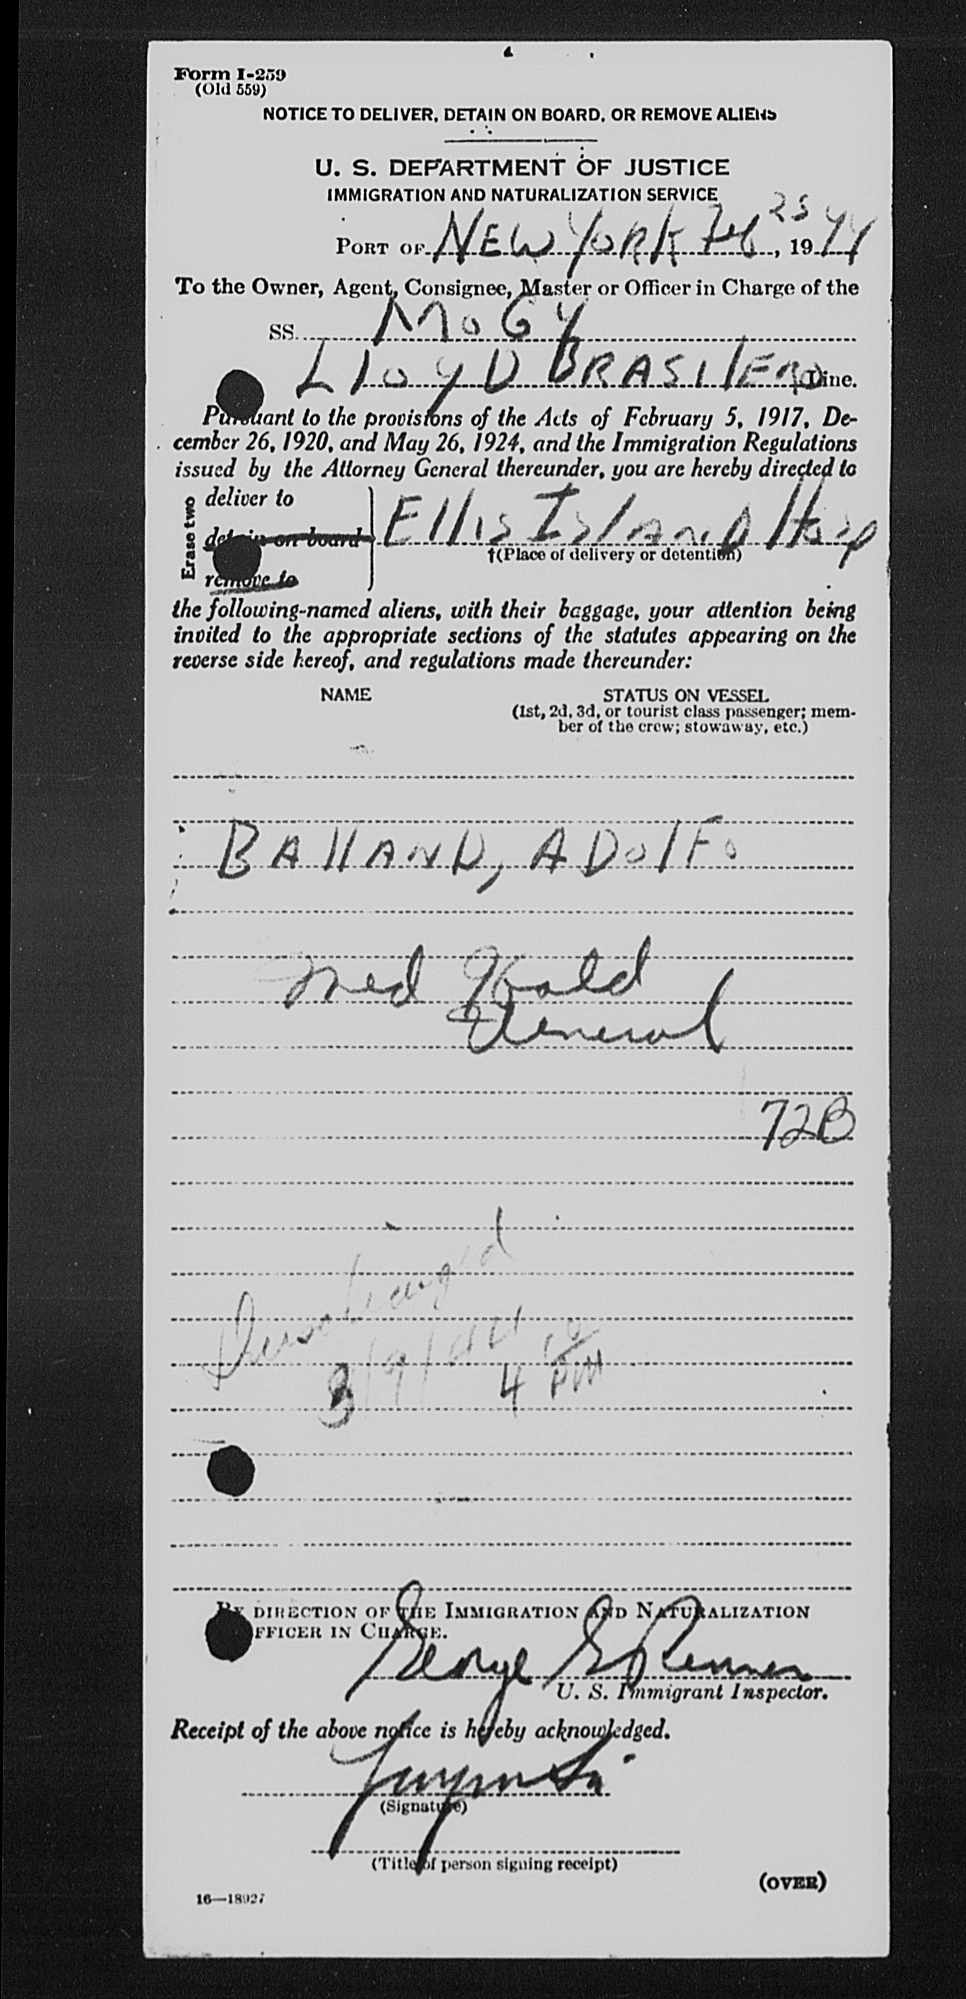 Form I-259
(Old 559)
NOTICE TO DELIVER, DETAIN ON BOARD, OR REMOVE ALIENS
U. S. DEPARTMENT OF JUSTICE
IMMIGRATION AND NATURALIZATION SERVICE
PORT OF NEW YORK Feb 25, 1944
To the Owner, Agent, Consignee, Master or Officer in Charge of the
SS. MOGY
LLOYD BRASILERO Line.
Pursuant to the provisions of the Acts of February 5, 1917, De-
cember 26, 1920, and May 26, 1924, and the Immigration Regulations
issued by the Attorney General thereunder, you are hereby directed to
Erase two
deliver to
detain on board Ellis Island Hosp
†(Place of delivery or detention)
remove to
the following-named aliens, with their baggage, your attention being
invited to the appropriate sections of the statutes appearing on the
reverse side hereof, and regulations made thereunder:
NAME STATUS ON VESSEL
(1st, 2d, 3d, or tourist class passenger; mem-
ber of the crew; stowaway, etc.)
BALLAND, ADOLFO
Med Hold
General
72B
Discharged
3/9/44 4 10 PM
BY DIRECTION OF THE IMMIGRATION AND NATURALIZATION
OFFICER IN CHARGE.
George E Renner
U. S. Immigrant Inspector.
Receipt of the above notice is hereby acknowledged.
(Signature)
(Title of person signing receipt)
(OVER)
16—18927